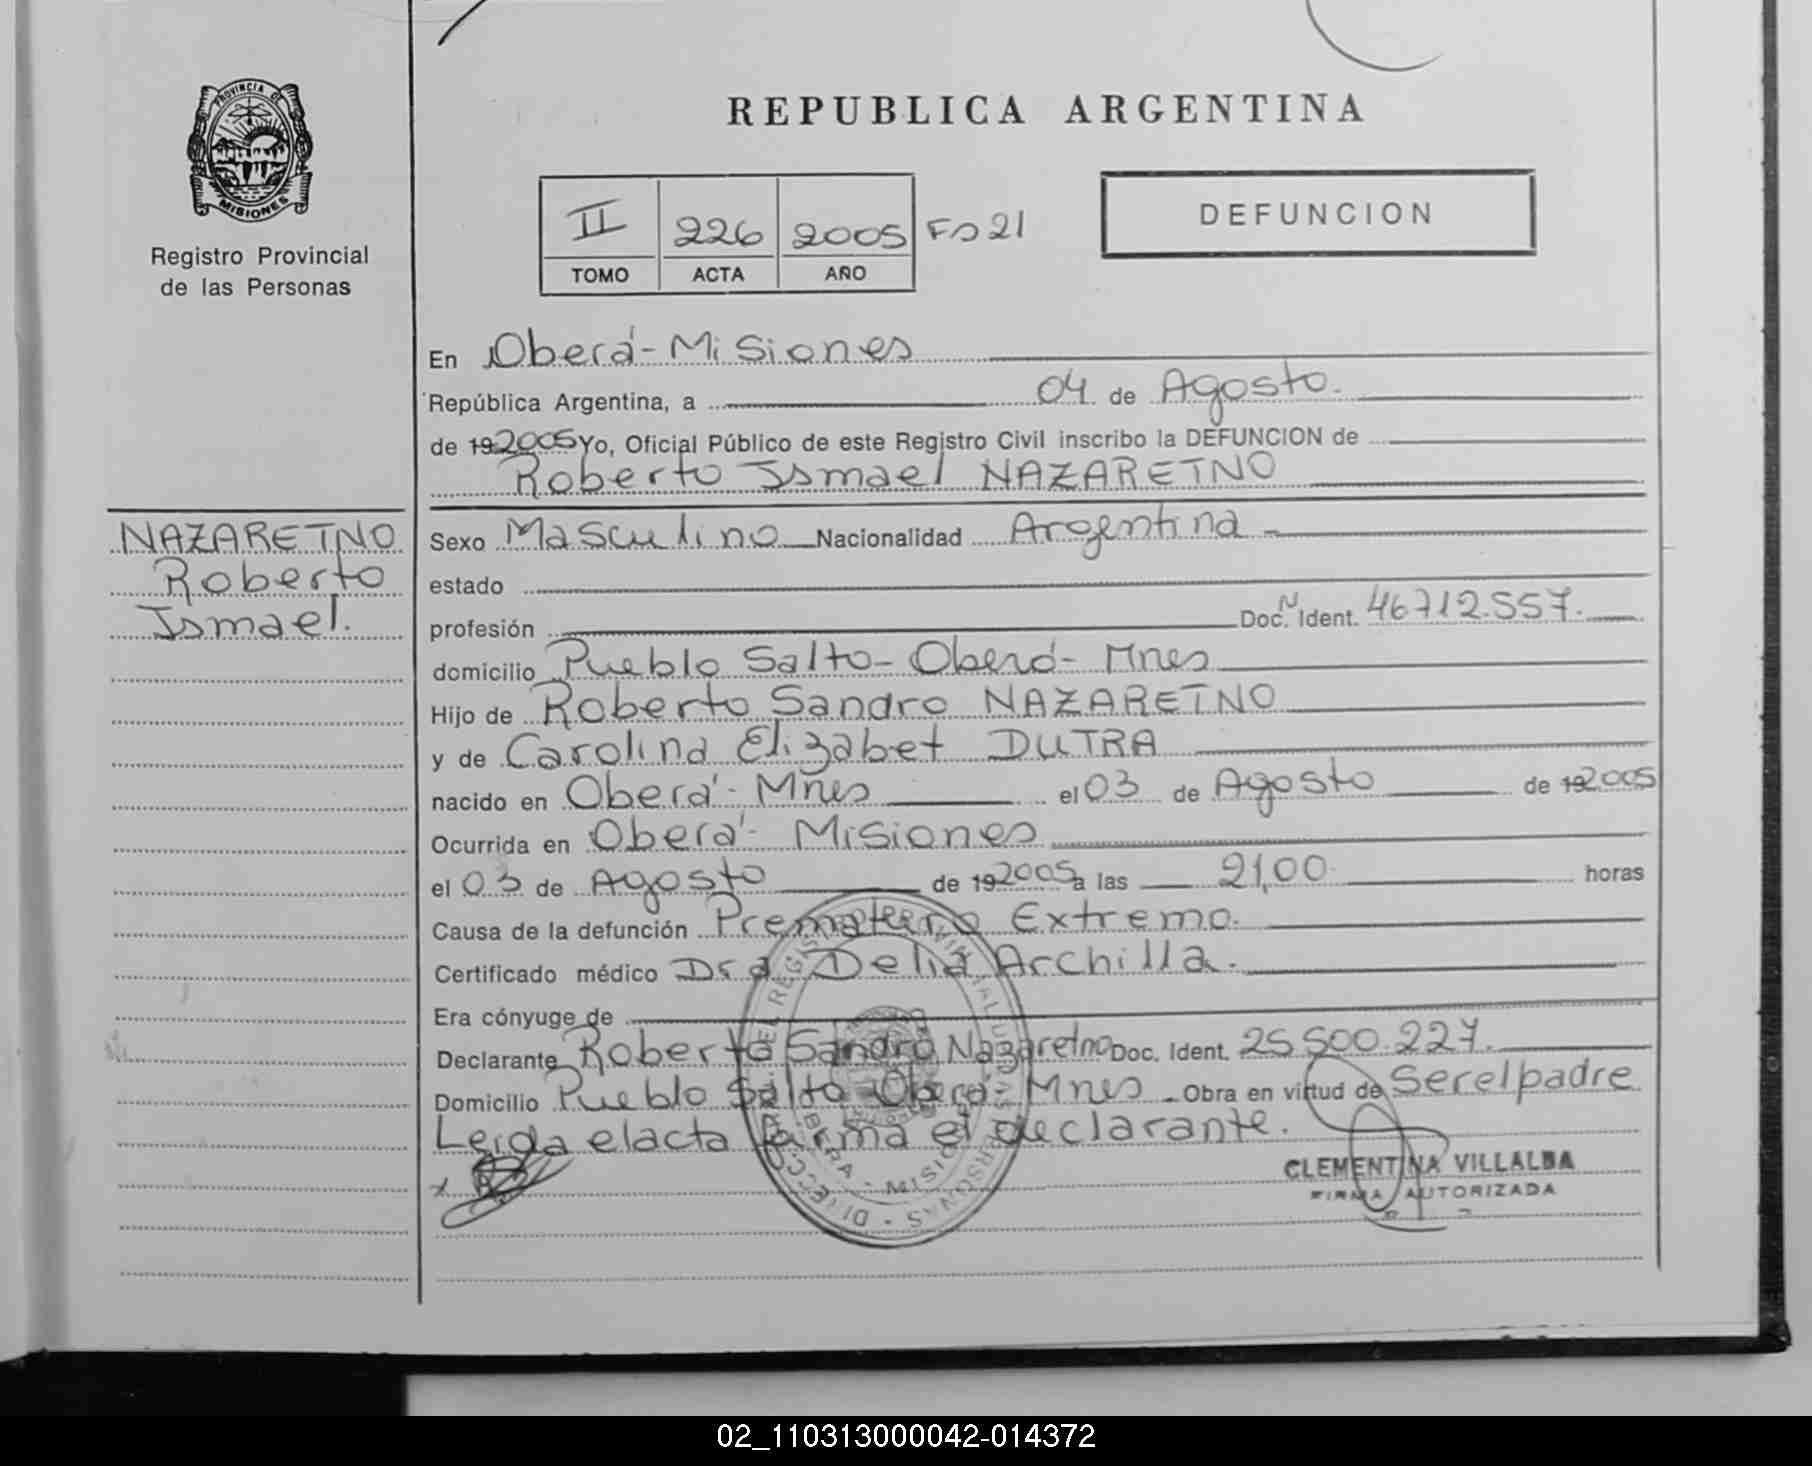 PROVINCIA DE
MISIONES
Registro Provincial
de las Personas
REPUBLICA ARGENTINA
II 226 2005 Fo 21
TOMO ACTA AÑO
DEFUNCION
En Oberá - Misiones
República Argentina, a 04 de Agosto.
de 192005 Yo, Oficial Público de este Registro Civil inscribo la DEFUNCION de
Roberto Ismael NAZARETNO
NAZARETNO
Roberto
Ismael.
Sexo Masculino Nacionalidad Argentina -
estado
profesión Doc. N Ident. 46712.557.
domicilio Pueblo Salto - Oberá - Mnes
Hijo de Roberto Sandro NAZARETNO
y de Carolina Elizabet DUTRA
nacido en Oberá - Mnes el 03 de Agosto de 192005
Ocurrida en Oberá - Misiones
el 03 de Agosto de 192005 a las 21,00 horas
Causa de la defunción Prematuro Extremo.
Certificado médico Dra Delia Archilla.
Era cónyuge de
Declarante Roberto Sandro Nazaretno Doc. Ident. 25500.227.
Domicilio Pueblo Salto Oberá - Mnes - Obra en virtud de Ser el padre
Leida el acta firma el declarante.
x
CLEMENTINA VILLALBA
FIRMA AUTORIZADA
02_110313000042-014372